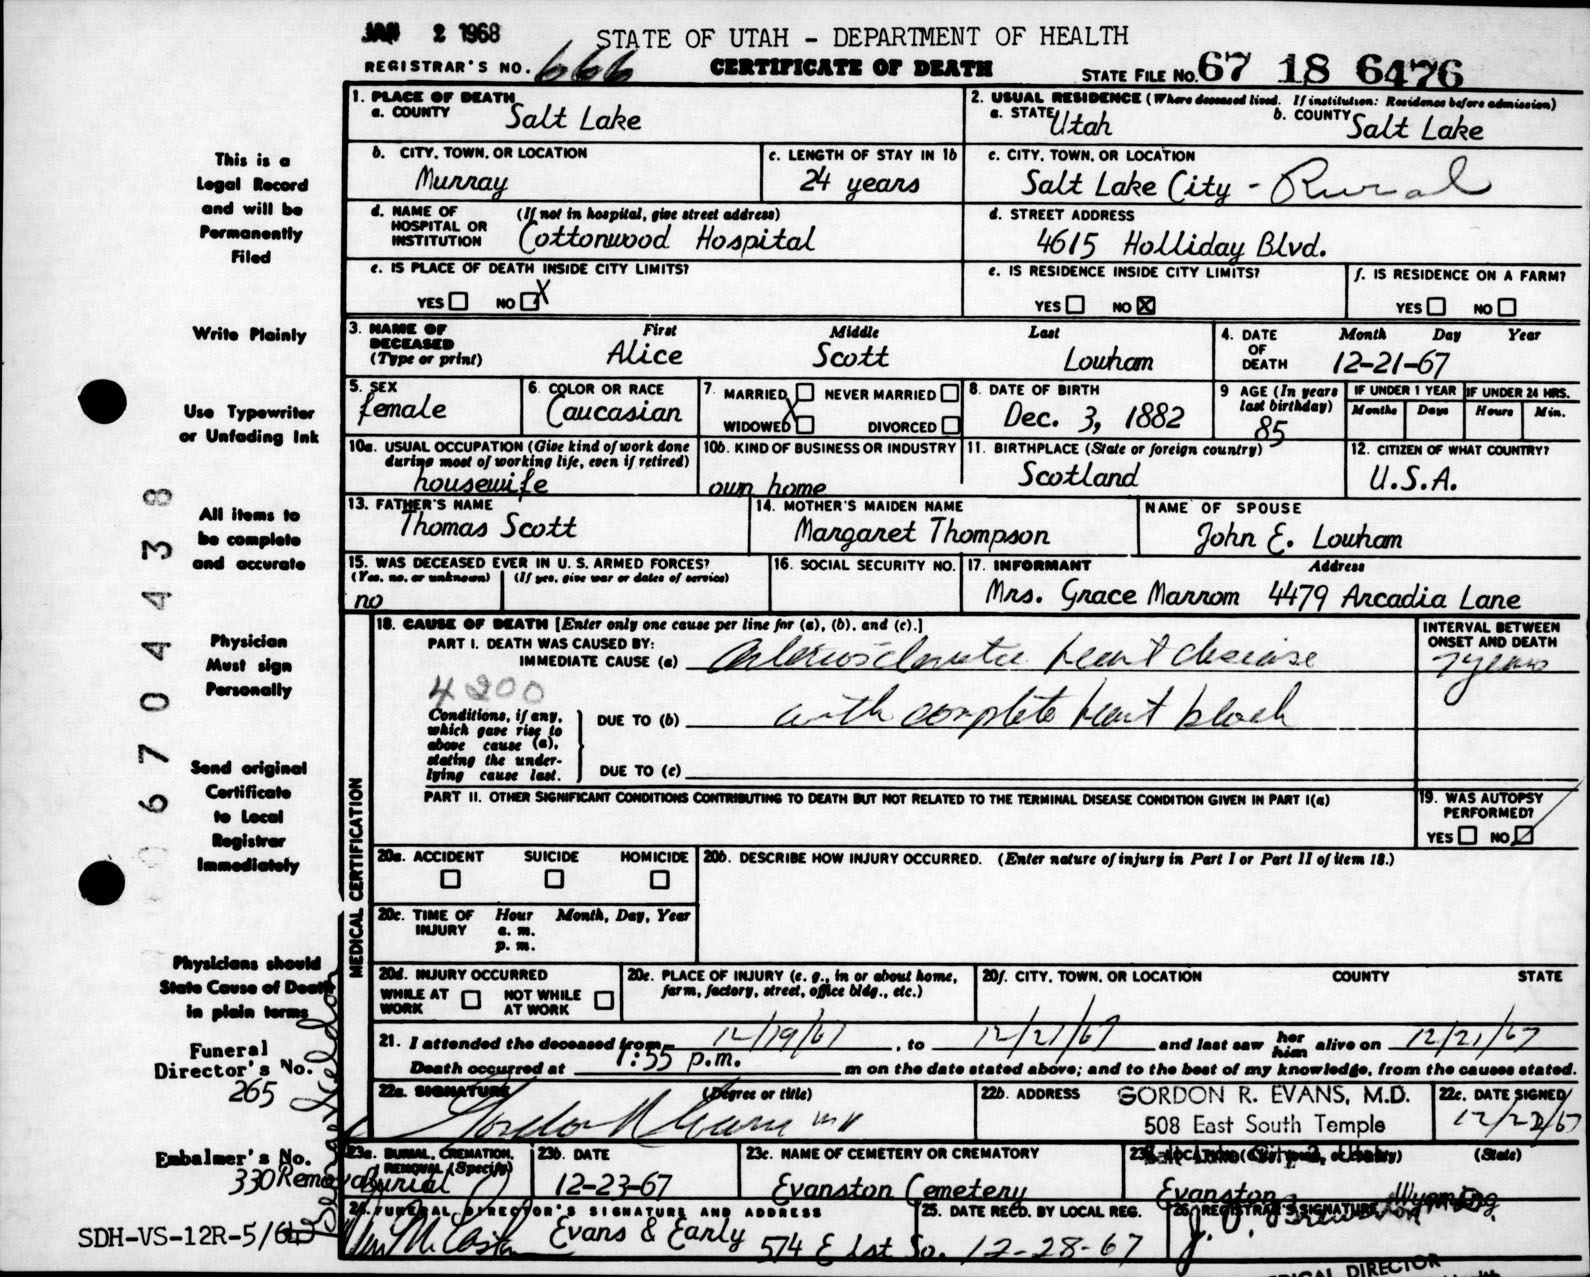 JAN 2 1968
STATE OF UTAH - DEPARTMENT OF HEALTH
REGISTRAR'S NO. 666
CERTIFICATE OF DEATH
STATE FILE NO. 67 18 6476
1. PLACE OF DEATH
a. COUNTY Salt Lake
2. USUAL RESIDENCE (Where deceased lived. If institution: Residence before admission)
a. STATE Utah
b. COUNTY Salt Lake
b. CITY, TOWN, OR LOCATION
Murray
c. LENGTH OF STAY IN 1b
24 years
c. CITY, TOWN, OR LOCATION
Salt Lake City - Rural
d. NAME OF HOSPITAL OR INSTITUTION (If not in hospital, give street address)
Cottonwood Hospital
d. STREET ADDRESS
4615 Holliday Blvd.
e. IS PLACE OF DEATH INSIDE CITY LIMITS?
YES NO X
e. IS RESIDENCE INSIDE CITY LIMITS?
YES NO X
f. IS RESIDENCE ON A FARM?
YES NO
3. NAME OF DECEASED (Type or print)
First Middle Last
Alice Scott Lowham
4. DATE OF DEATH
Month Day Year
12-21-67
5. SEX
female
6. COLOR OR RACE
Caucasian
7. MARRIED NEVER MARRIED
WIDOWED X DIVORCED
8. DATE OF BIRTH
Dec. 3, 1882
9 AGE (In years last birthday)
85
IF UNDER 1 YEAR
Months Days
IF UNDER 24 HRS.
Hours Min.
10a. USUAL OCCUPATION (Give kind of work done during most of working life, even if retired)
housewife
10b. KIND OF BUSINESS OR INDUSTRY
own home
11. BIRTHPLACE (State or foreign country)
Scotland
12. CITIZEN OF WHAT COUNTRY?
U.S.A.
13. FATHER'S NAME
Thomas Scott
14. MOTHER'S MAIDEN NAME
Margaret Thompson
NAME OF SPOUSE
John E. Lowham
15. WAS DECEASED EVER IN U. S. ARMED FORCES?
(Yes, no, or unknown) (If yes, give war or dates of service)
no
16. SOCIAL SECURITY NO.
17. INFORMANT Address
Mrs. Grace Marrom 4479 Arcadia Lane
18. CAUSE OF DEATH [Enter only one cause per line for (a), (b), and (c).]
PART I. DEATH WAS CAUSED BY:
IMMEDIATE CAUSE (a) Arteriosclerotic heart disease
INTERVAL BETWEEN ONSET AND DEATH
7 years
4200
Conditions, if any, which gave rise to above cause (a), stating the underlying cause last.
DUE TO (b) with complete heart block
DUE TO (c)
PART II. OTHER SIGNIFICANT CONDITIONS CONTRIBUTING TO DEATH BUT NOT RELATED TO THE TERMINAL DISEASE CONDITION GIVEN IN PART I(a)
19. WAS AUTOPSY PERFORMED?
YES NO
MEDICAL CERTIFICATION
20a. ACCIDENT SUICIDE HOMICIDE
20b. DESCRIBE HOW INJURY OCCURRED. (Enter nature of injury in Part I or Part II of item 18.)
20c. TIME OF INJURY Hour Month, Day, Year
a. m.
p. m.
20d. INJURY OCCURRED
WHILE AT WORK NOT WHILE AT WORK
20e. PLACE OF INJURY (e. g., in or about home, farm, factory, street, office bldg., etc.)
20f. CITY, TOWN, OR LOCATION COUNTY STATE
21. I attended the deceased from 12/19/67, to 12/21/67 and last saw her him alive on 12/21/67
Death occurred at 1:55 p.m. m on the date stated above; and to the best of my knowledge, from the causes stated.
22a. SIGNATURE (Degree or title)
Gordon R Evans MD
22b. ADDRESS
GORDON R. EVANS, M.D.
508 East South Temple
22c. DATE SIGNED
12/22/67
23a. BURIAL, CREMATION, REMOVAL (Specify)
Removal Burial
23b. DATE
12-23-67
23c. NAME OF CEMETERY OR CREMATORY
Evanston Cemetery
(State)
Evanston Wyoming
24. FUNERAL DIRECTOR'S SIGNATURE AND ADDRESS
Evans & Early 574 E 1st So.
25. DATE REC'D. BY LOCAL REG.
12-28-67
26. REGISTRAR'S SIGNATURE
MEDICAL DIRECTOR
This is a
Legal Record
and will be
Permanently
Filed
Write Plainly
Use Typewriter
or Unfading Ink
All items to
be complete
and accurate
Physician
Must sign
Personally
Send original
Certificate
to Local
Registrar
Immediately
Physicians should
State Cause of Death
in plain terms
Funeral
Director's No.
265
Embalmer's No.
330
SDH-VS-12R-5/64
6704438